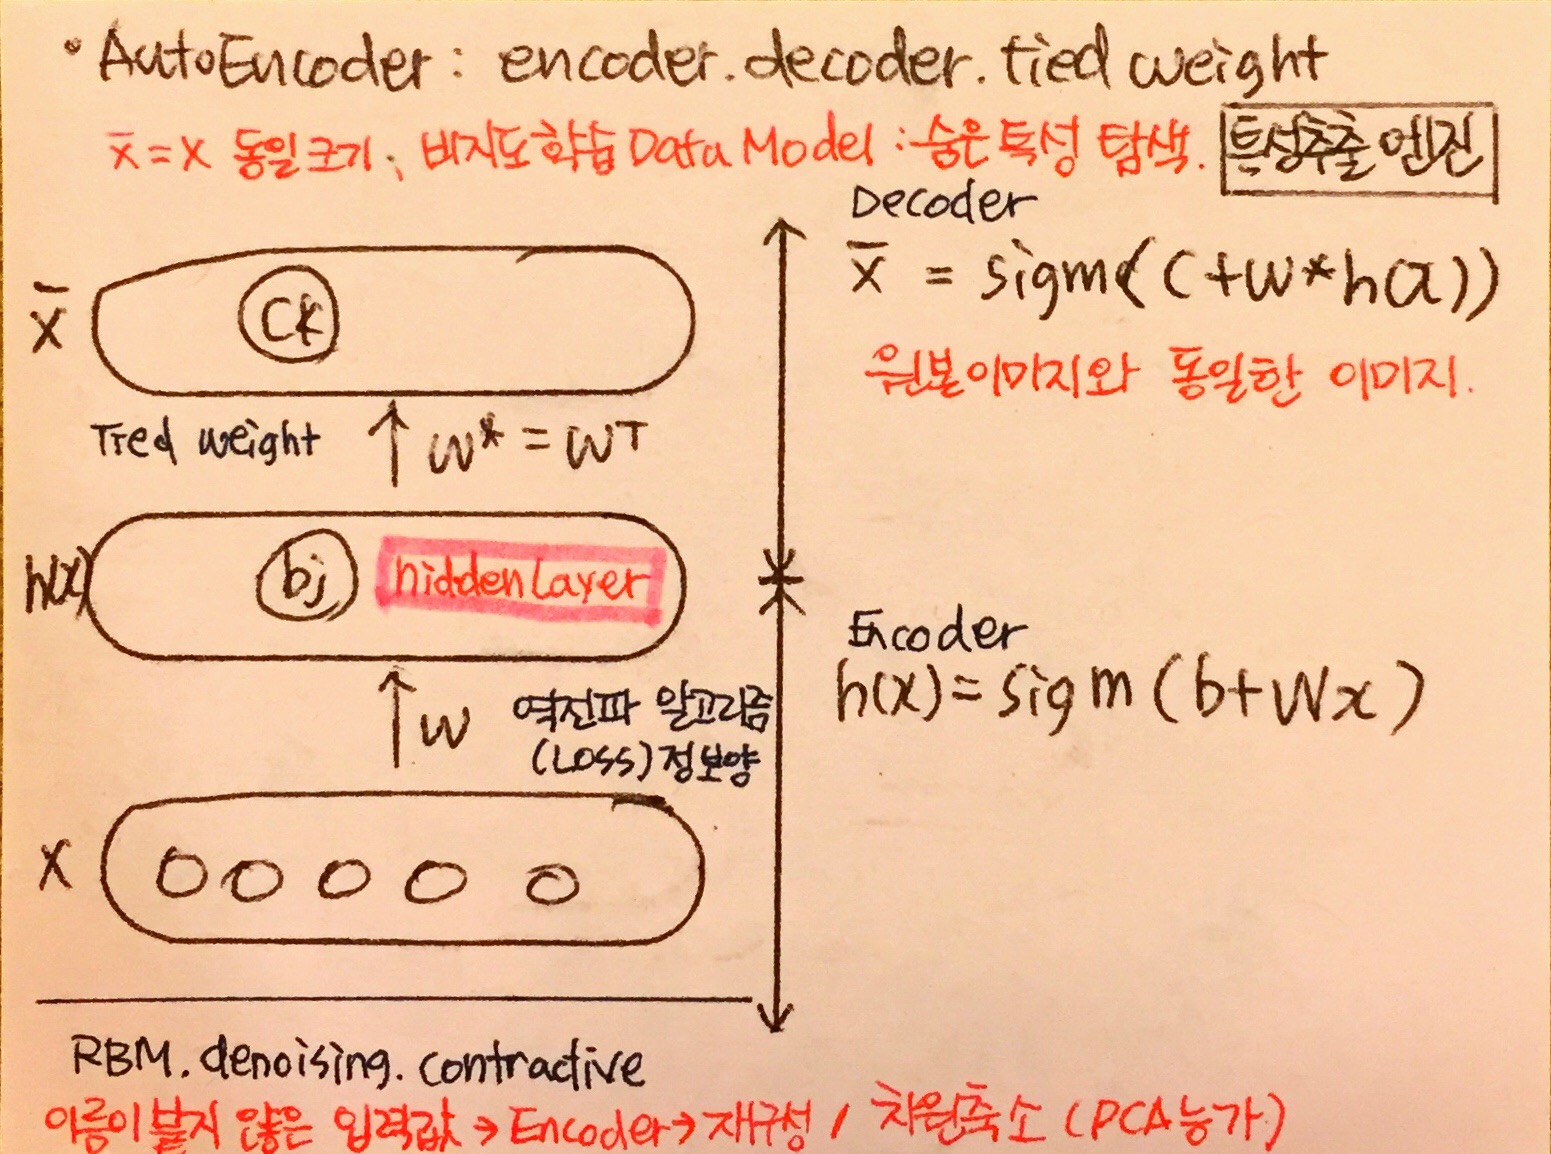 • AutoEncoder : encoder. decoder. tied weight
x̄ = x 동일크기, 비지도학습 Data Model : 숨은 특성 탐색. 특성추출 엔진
Decoder
x̄ = sigm(c+w*h(x))
원본이미지와 동일한 이미지.
x̄ Ck
Tied weight ↑ w* = wT
h(x) bj hidden Layer
Encoder
h(x) = sigm (b+Wx)
↑ W 역전파 알고리즘
(Loss) 정보양
x
RBM. denoising. contractive
이름이 붙지 않은 입력값 → Encoder → 재구성 / 차원축소 (PCA능가)